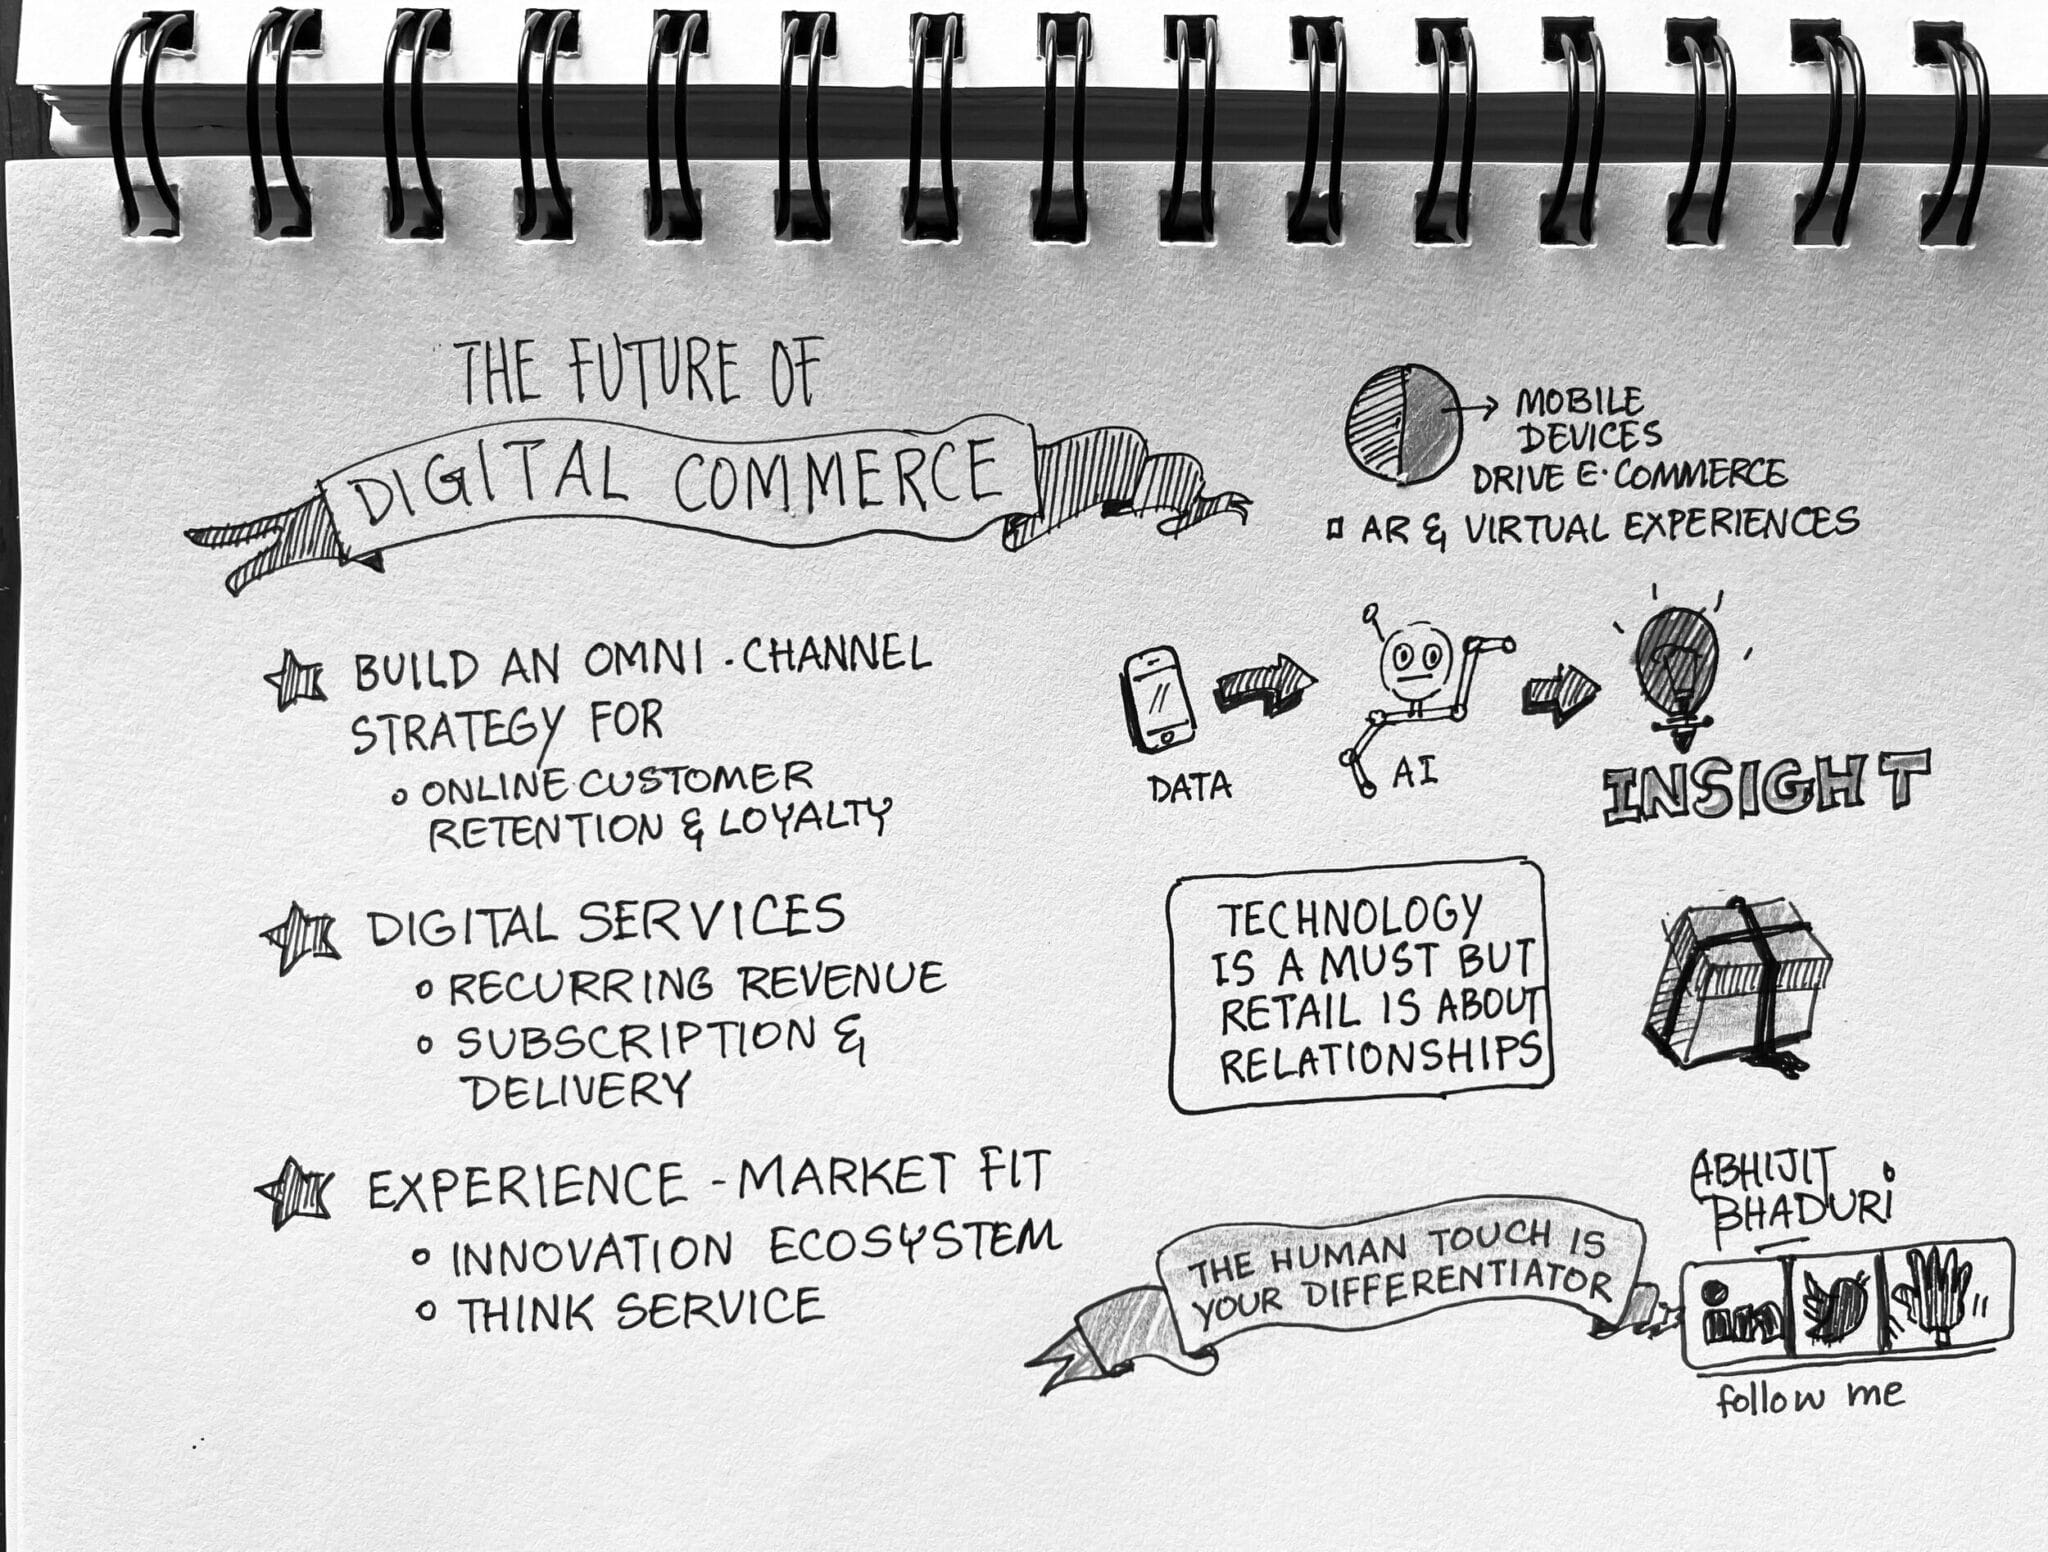 THE FUTURE OF
DIGITAL COMMERCE
BUILD AN OMNI-CHANNEL
STRATEGY FOR
ONLINE CUSTOMER
RETENTION & LOYALTY
DIGITAL SERVICES
RECURRING REVENUE
SUBSCRIPTION &
DELIVERY
EXPERIENCE - MARKET FIT
INNOVATION ECOSYSTEM
THINK SERVICE
MOBILE
DEVICES
DRIVE E-COMMERCE
AR & VIRTUAL EXPERIENCES
DATA
AI
INSIGHT
TECHNOLOGY
IS A MUST BUT
RETAIL IS ABOUT
RELATIONSHIPS
THE HUMAN TOUCH IS
YOUR DIFFERENTIATOR
ABHIJIT
BHADURI
in
follow me